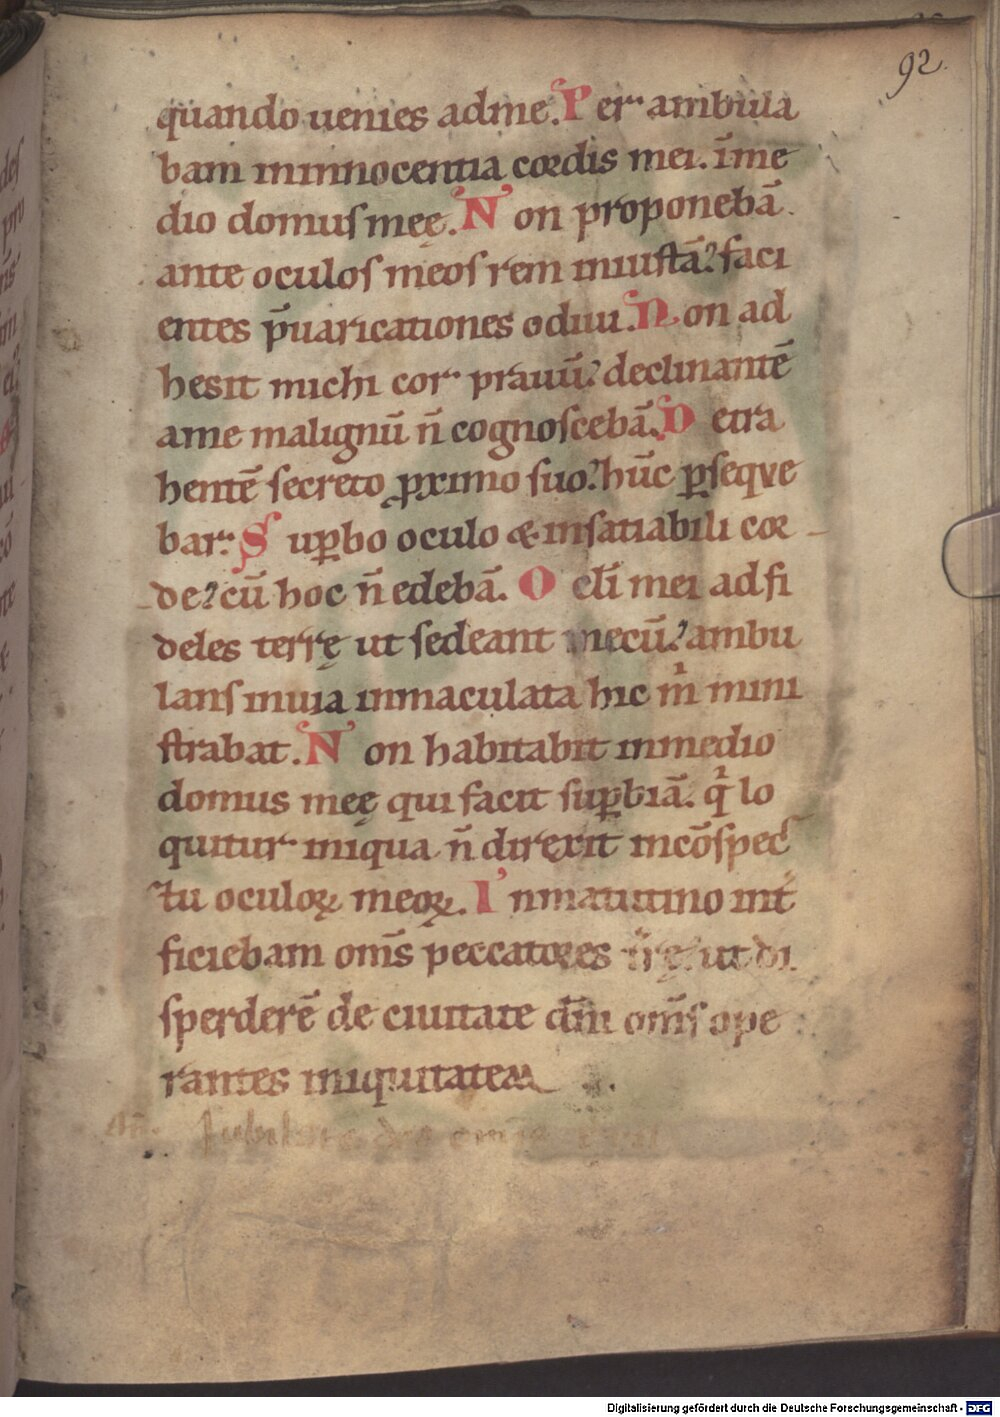 92.
quando uenies adme. Per ambula
bam ininnocentia cordis mei. īme
dio domus meę. Non proponebā
ante oculos meos rem iniustā? faci
entes p̄uaricationes odiui. Non ad
hesit michi cor prauū? declinantē
ame malignū n̄ cognoscebā. Detra
hentē secreto ꝓximo suo? hūc ꝑseque
bar. Suꝑbo oculo & insatiabili cor
de? cū hoc n̄ edebā. Oclī mei ad fi
deles terrę ut sedeant mecū? ambu
lans inuia inmaculata hic m̄ mini
strabat. Non habitabit inmedio
domus meę qui facit suꝑbiā. q̇ lo
quitur iniqua n̄ direxit incōspec
tu oculoꝝ meoꝝ. Inmatutino int̄
ficiebam om̄s peccatores t̄rę. ut di
sperderē de ciuitate dn̄i om̄s ope
rantes iniquitatem
Iubilate deo omīs
Digitalisierung gefördert durch die Deutsche Forschungsgemeinschaft - DFG